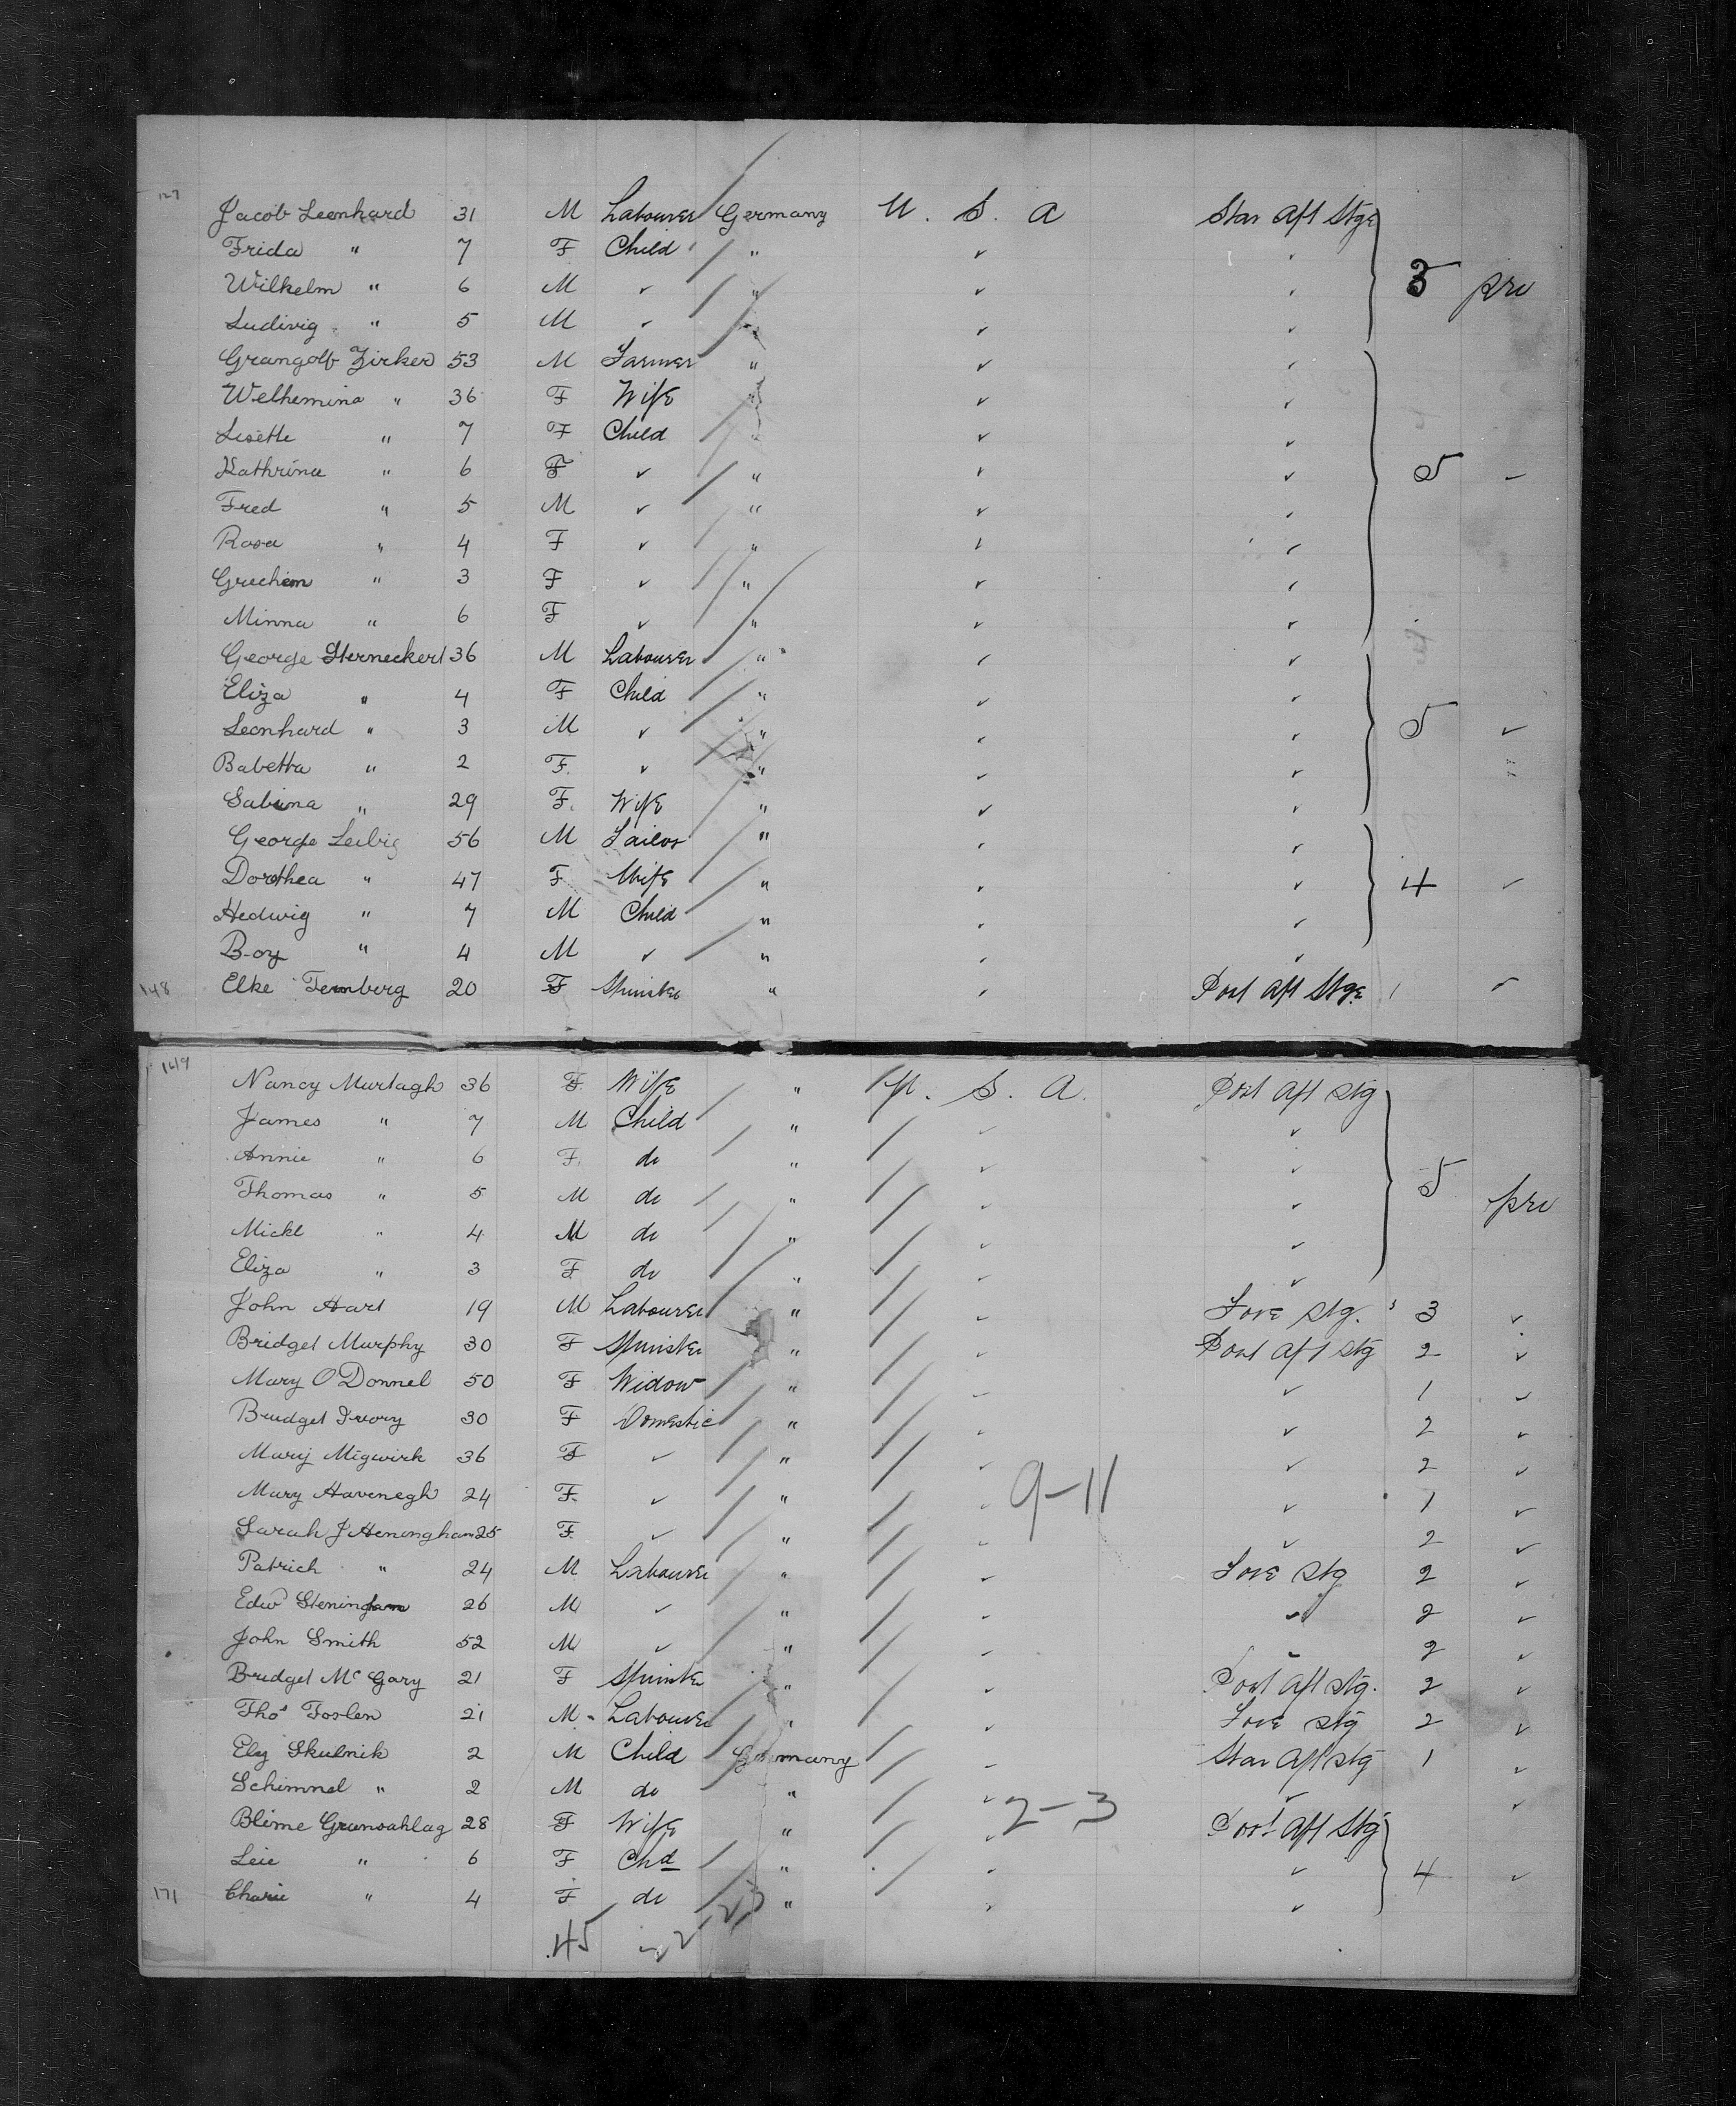 127 Jacob Leonhard 31 M Labourer Germany U. S. A Star Aft Stge
Frida " 7 F Child " ✓ ✓
Wilhelm " 6 M ✓ " ✓ ✓ 3 pro
Ludivig " 5 M ✓ " ✓ ✓
Grangolf Zirker 53 M Farmer " ✓ ✓
Welhemina " 36 F Wife " ✓ ✓
Lisette " 7 F Child " ✓ ✓
Kathrina " 6 F ✓ " ✓ ✓ 5 ✓
Fred " 5 M ✓ " ✓ ✓
Rosa " 4 F ✓ " ✓ ✓
Grechen " 3 F ✓ " ✓ ✓
Minna " 6 F ✓ " ✓ ✓
George Sterneckert 36 M Labourer " ✓ ✓
Eliza " 4 F Child " ✓ ✓
Leonhard " 3 M ✓ " ✓ ✓ 5 ✓
Babetta " 2 F. ✓ " ✓ ✓
Sabina " 29 F. Wife " ✓ ✓
George Leibig 56 M Tailor " ✓ ✓
Dorothea " 47 F Wife " ✓ ✓ 4 ✓
Hedwig " 7 M Child " ✓ ✓
Boy " 4 M ✓ " ✓ ✓
148 Elke Temberg 20 F Spinster " ✓ Port Aft Stge 1 ✓
149 Nancy Murtagh 36 F Wife " U. S. A. Port Aft Stg
James " 7 M Child " ✓ ✓
Annie " 6 F. do " ✓ ✓
Thomas " 5 M do " ✓ ✓ 5 pro
Mickl " 4 M do " ✓ ✓
Eliza " 3 F do " ✓ ✓
John Hart 19 M Labourer " ✓ Fore Stg. 3 ✓
Bridget Murphy 30 F Spinster " ✓ Port Aft Stg 2 ✓
Mary O Donnel 50 F Widow " ✓ ✓ 1 ✓
Bridget Ivory 30 F Domestic " ✓ ✓ 2 ✓
Mary Migwirk 36 F ✓ " ✓ ✓ 2 ✓
Mary Havenegh 24 F. ✓ " ✓ 9-11 ✓ 1 ✓
Sarah J Heningham 25 F. ✓ " ✓ ✓ 2 ✓
Patrick " 24 M Labourer " ✓ Fore Stg 2 ✓
Edwd Steningham 26 M ✓ " ✓ ✓ 2 ✓
John Smith 52 M ✓ " ✓ ✓ 2 ✓
Bridget Mc Gary 21 F Spinster " ✓ Port Aft Stg. 2 ✓
Thos Foslen 21 M Labourer " ✓ Fore Stg 2 ✓
Ely Skulnik 2 M Child Germany ✓ Star Aft Stg 1 ✓
Schimmel " 2 M do " ✓ 2-3 ✓ ✓
Blime Grunsahlag 28 F Wife " ✓ Port Aft Stg
Leie " 6 F Chd " ✓ ✓ 4 ✓
171 Charie " 4 F do " ✓ ✓
45